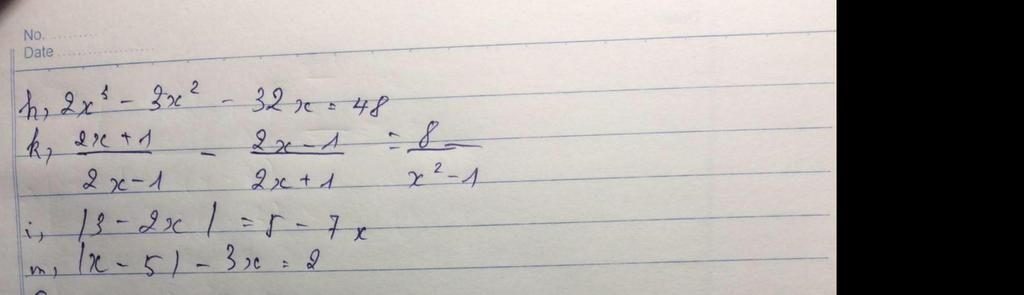 No. ............
Date ........................
h, 2x³ - 3x² - 32x = 48
k, (2x+1)/(2x-1) - (2x-1)/(2x+1) = 8/(x²-1)
i, |3 - 2x| = 5 - 7x
m, |x - 5| - 3x = 2